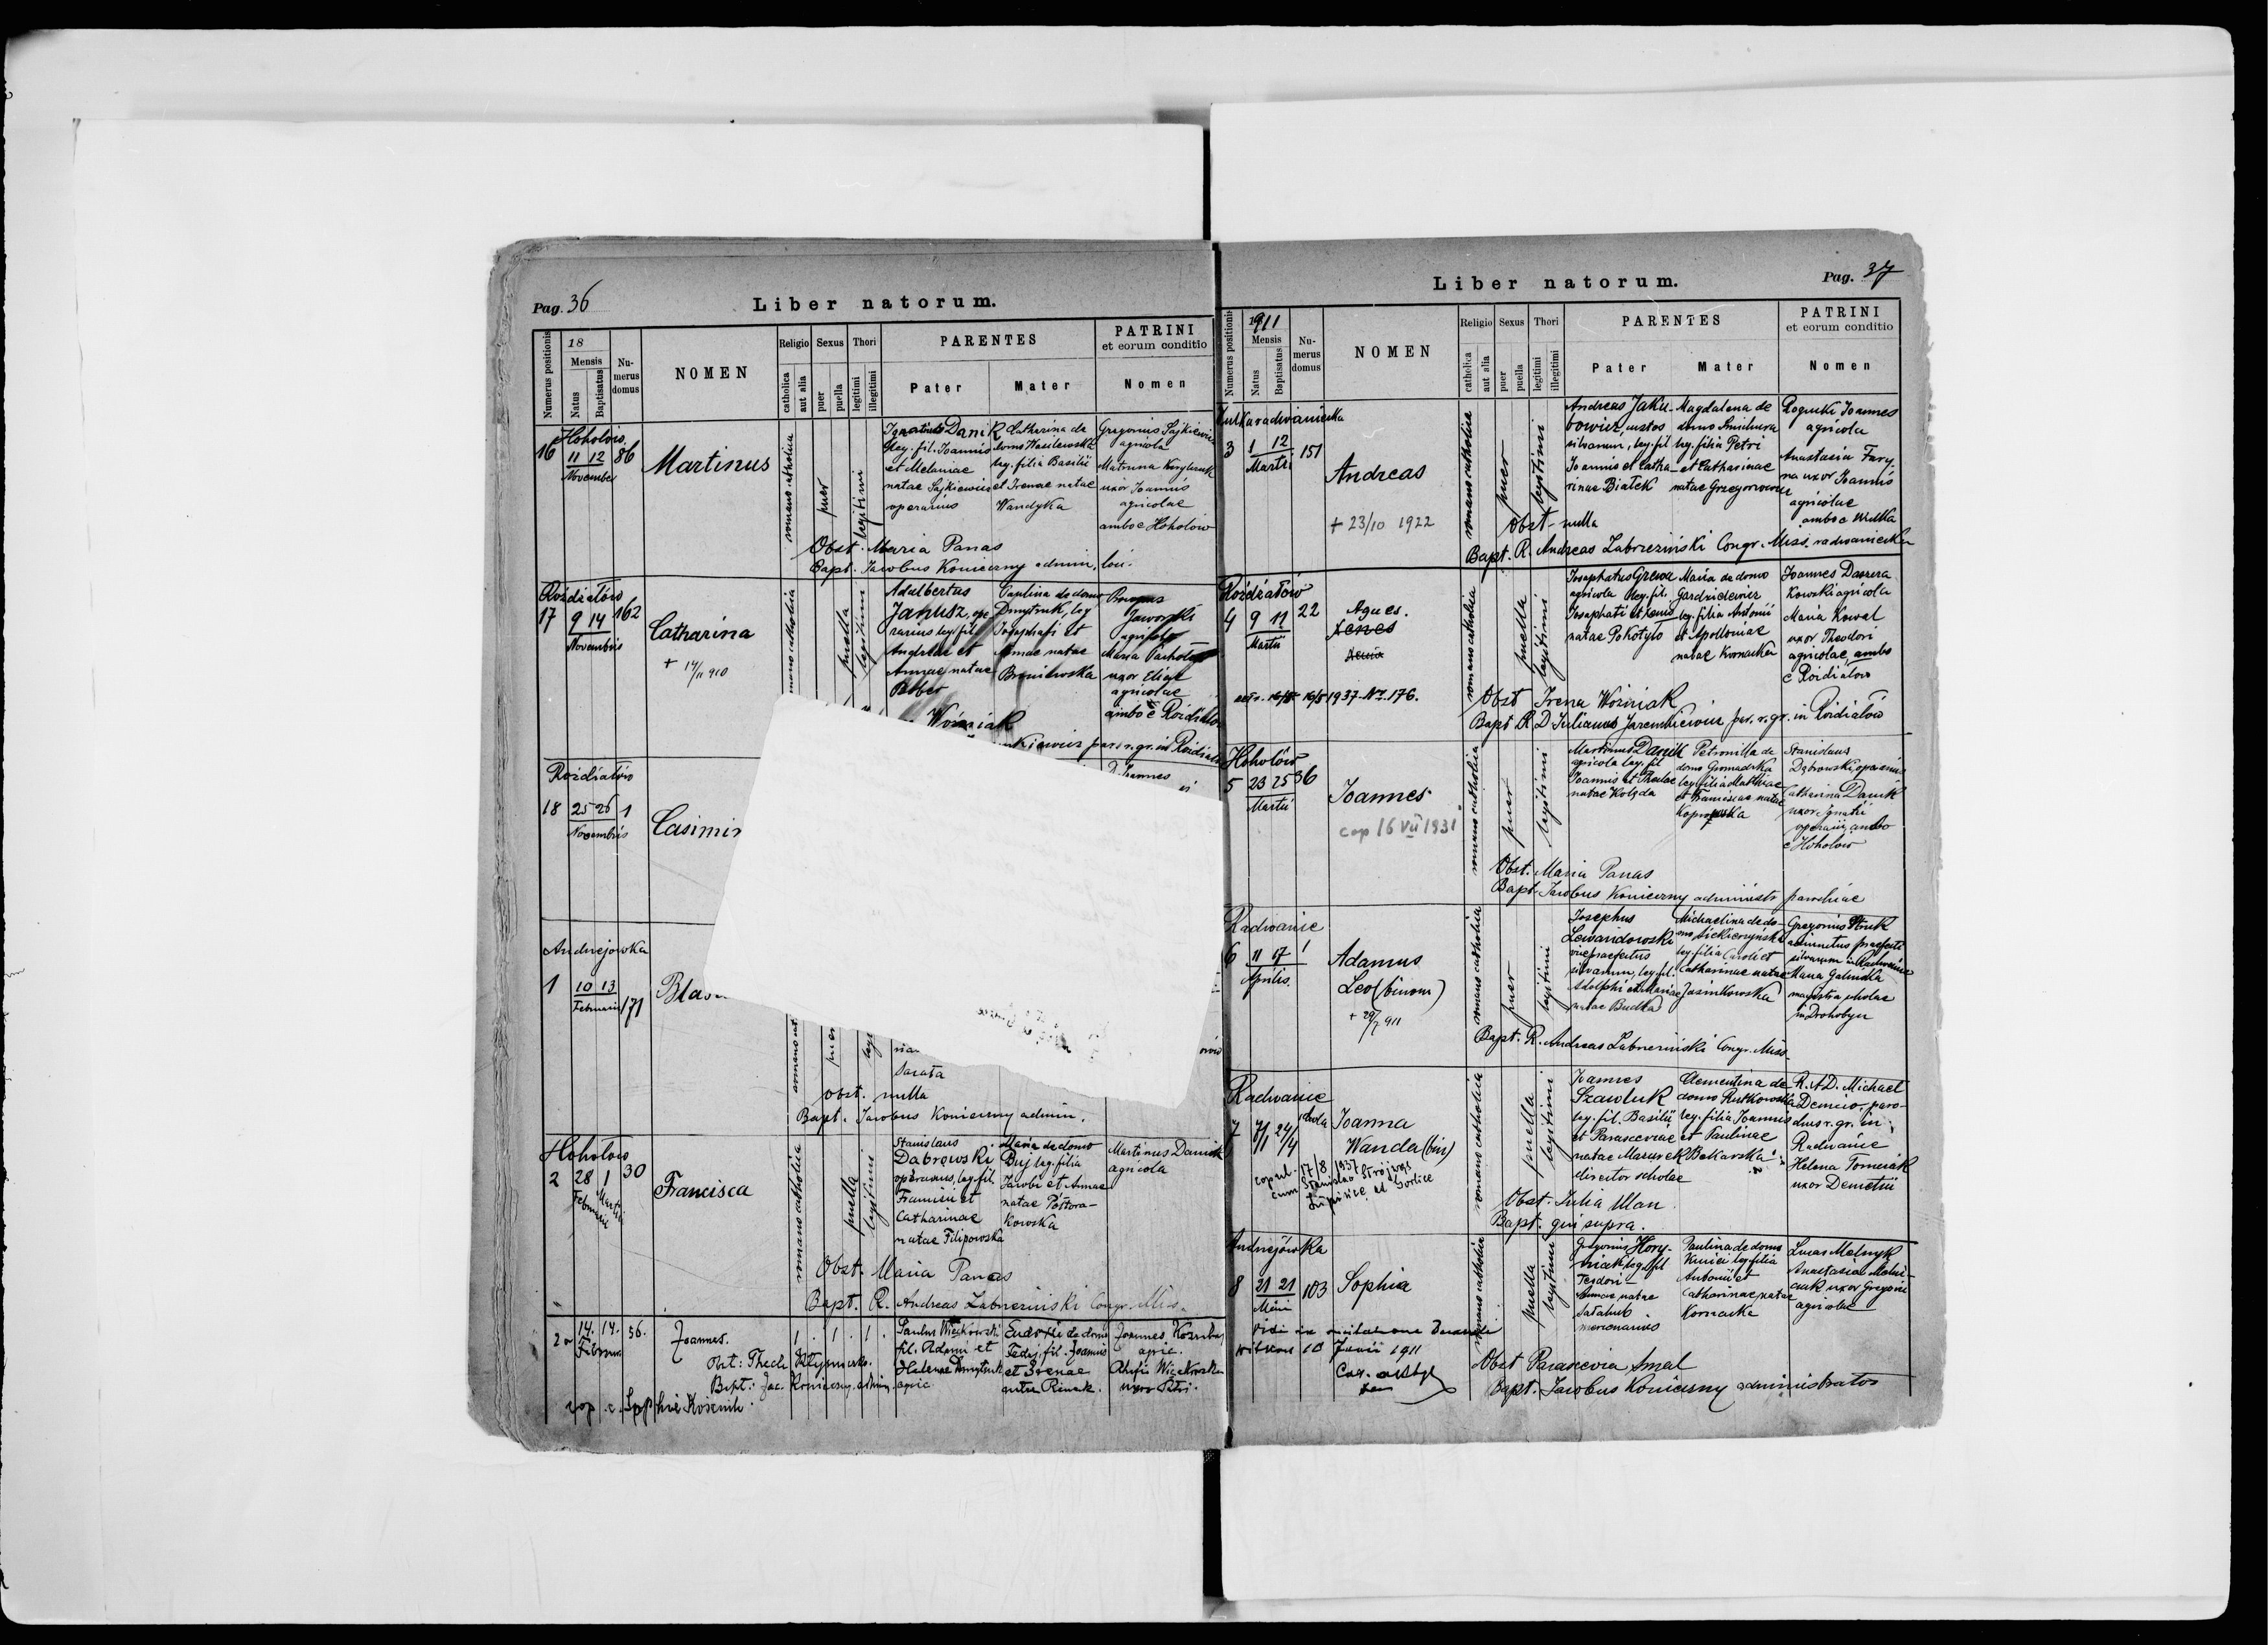 Pag. 36
Liber natorum.
Numerus positionis
18
Mensis
Natus
Baptisatus
Nu-
merus
domus
NOMEN
Religio
catholica
aut alia
Sexus
puer
puella
Thori
legitimi
illegitimi
PARENTES
Pater
Mater
PATRINI
et eorum conditio
Nomen
Hoholów
16
11 12
November
86
Martinus
romano catholica
puer
legitimi
Ignatius Danik
leg. fil. Joannis
et Melaniae
natae Sajkiewicz
operarius
Catharina de
domo Wasilewska
leg. filia Basilii
et Irenae natae
Wandyka
Gregorius Sajkiewicz
agricola
Matruna
uxor Joannis
agricolae
ambo e Hoholów
Obst. Maria Panas
Bapt. Jacobus Konieczny admin.
Rożdżałów
17
9 14
Novembris
162
Catharina
+ 14/11 910
puella
legitimi
Adalbertus
Janusz, ope
rarius leg. fil.
Andreae et
Annae natae
Bober
Paulina de domo
Dmytruk, leg
Josaphati et
Annae natae
Bronikowska
Jaworski
agricola
Maria
uxor Eliae
agricolae
ambo e Rożdżałów
Woźniak
par. r. gr. in Rożdżałów
Rożdżałów
18
25 26
Novembris
1
Casimir
Joannes
Andrejówka
1
10 13
Februarii
171
Blas
Sarata
Obst. nulla
Bapt. Jacobus Konieczny admin.
Hoholów
2
28 1
Februarii Martii
30
Francisca
romano catholica
puella
legitimi
Stanislaus
Dąbrowski
operarius, leg. fil.
et
Catharinae
natae Filipowska
Maria de domo
Buj leg. filia
Jacobi et Annae
natae Póstora-
kowska
Martinus Daniuk
agricola
Obst. Maria Panas
Bapt. R. Andreas Zabrzeziński Congr. Miss.
2a
14. 14.
56.
Joannes.
1. 1. 1.
fil. Adami et
Helenae Dmytruk
agric
Eudoxia de domo
fil. Joannis
et Irenae
Joannes
agric.
uxor Petri.
Obst: Thecla
Bapt: Jac. Konieczny, admin.
cop. c. Sophia
Liber natorum.
Pag. 37
Numerus positionis
1911
Mensis
Natus
Baptisatus
Nu-
merus
domus
NOMEN
Religio
catholica
aut alia
Sexus
puer
puella
Thori
legitimi
illegitimi
PARENTES
Pater
Mater
PATRINI
et eorum conditio
Nomen
3
1 12
Martii
151
Andreas
+ 23/10 1922
romano catholica
puer
legitimi
Andreas Jaku-
bowicz, custos
silvarum, leg. fil
Joannis et Catha-
rinae Białek
Magdalena de
domo
leg. filia Petri
et Catharinae
natae Grzegorzewicz
Joannes
agricola
Anastasia Fary-
na uxor Joannis
agricolae
ambo e Wulka
Obst. nulla
Bapt. R. Andreas Zabrzeziński Congr. Miss. radwaniecka
Rożdżałów
4
9 11
Martii
22
Agnes.
1937 No. 176.
romano catholica
puella
legitimi
Josaphatus
agricola leg. fil.
Josaphati et
natae Pokotyło
Maria de domo
leg. filia Antonii
et Apolloniae
natae Kornacka
Joannes
agricola
Maria Kowal
uxor Theodori
agricolae, ambo
e Rożdżałów
Obst Irena Woźniak
Bapt R. D. Julianus Jaremkiewicz par. r. gr. in Rożdżałów
Hoholów
5
23 25
Martii
36
Joannes
cop 16 VII 1931
romano catholica
puer
legitimi
Martinus Danik
agricola leg. fil
Joannis et Theclae
natae Kolęda
Petronilla de
domo Gromadzka
leg. filia Mathiae
et Franciscae natae
Stanislaus
Dąbrowski, operarius
Catharina Daniuk
uxor Ignatii
operarii ambo
e Hoholów
Obst. Maria Panas
Bapt. Jacobus Konieczny administr parochiae
Radwańce
6
11 17
Aprilis.
1
Adamus
Leo (binom)
romano catholica
puer
legitimi
Josephus
Lewandowski
vicepraefectus
silvarum, leg. fil.
Adolphi et Mariae
natae Budka
Michaelina de do-
mo
leg. filia Caroli et
Catharinae natae
Jasinkowska
Gregorius
praefecti
silvarum in Radwańce
Maria
magistra scholae
in Drohobycz
Bapt. R. Andreas Zabrzeziński Congr. Miss.
Radwańce
7
7/1 24/4
Joanna
Wanda (bin)
copul. 17/8 1937
cum Stanislao
ad Gorlice
romano catholica
puella
legitimi
Joannes
Szawluk
leg. fil. Basilii
et Parasceviae
natae Mazurek
director scholae
Clementina de
domo Rutkowska
leg. filia Joannis
et Paulinae
Bekarska
R. A. D. Michael
Demcio, paro-
chus r. gr. in
Radwańce
Helena Tomczak
uxor Demetrii
Obst. Julia Ulan
Bapt. qui supra.
Andrejówka
8
21 21
103
Sophia
puella
legitimi
Gregorius Hory-
niak leg. fil
Teodori
Annae natae
mercenarius
Paulina de domo
leg. filia
Antonii et
Catharinae natae
Kornacka
Lucas Melnyk
Anastasia Melni-
uxor Gregorii
agricolae
Vidi in visitatione
10 Junii 1911
Obst Parascevia Smal
Bapt. Jacobus Konieczny administrator